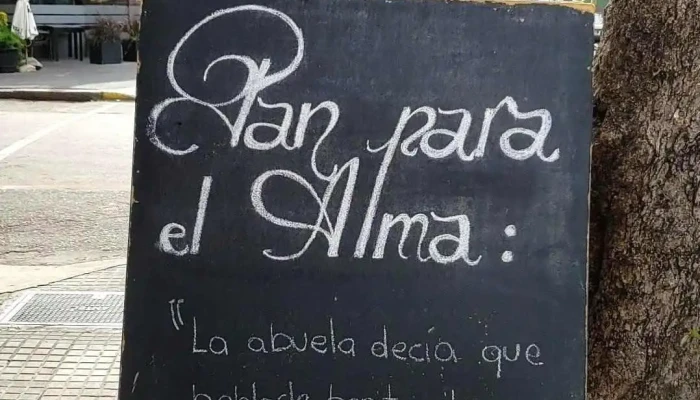 Pan para
el Alma:
"La abuela decía que